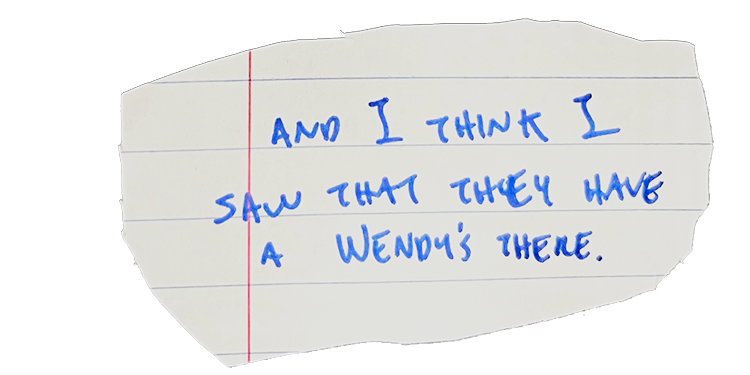 AND I THINK I
SAW THAT THEY HAVE
A WENDY'S THERE.